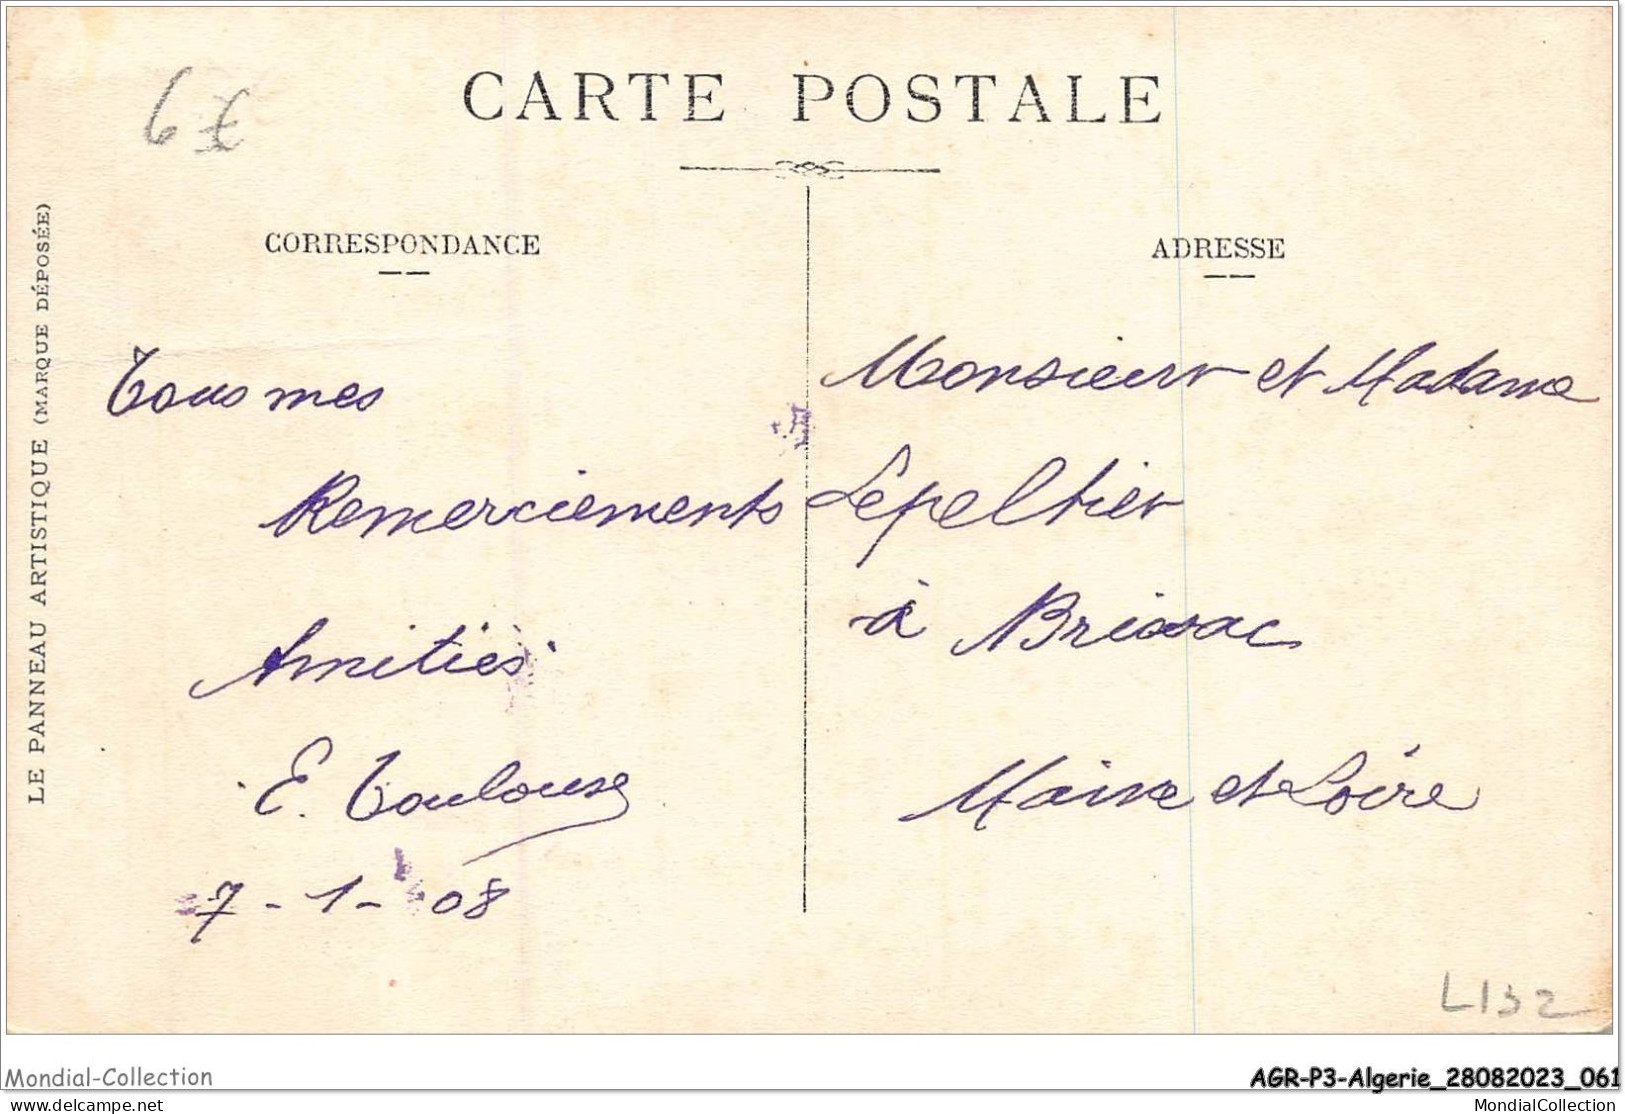 CARTE POSTALE
6€
CORRESPONDANCE
ADRESSE
LE PANNEAU ARTISTIQUE (MARQUE DÉPOSÉE)
Tous mes
Remerciements
Amitiés
E. Toulouse
7-1-08
Monsieur et Madame
Lepeltier
à Brissac
Maine et Loire
L132
Mondial-Collection
AGR-P3-Algerie_28082023_061
delcampe.net
MondialCollection